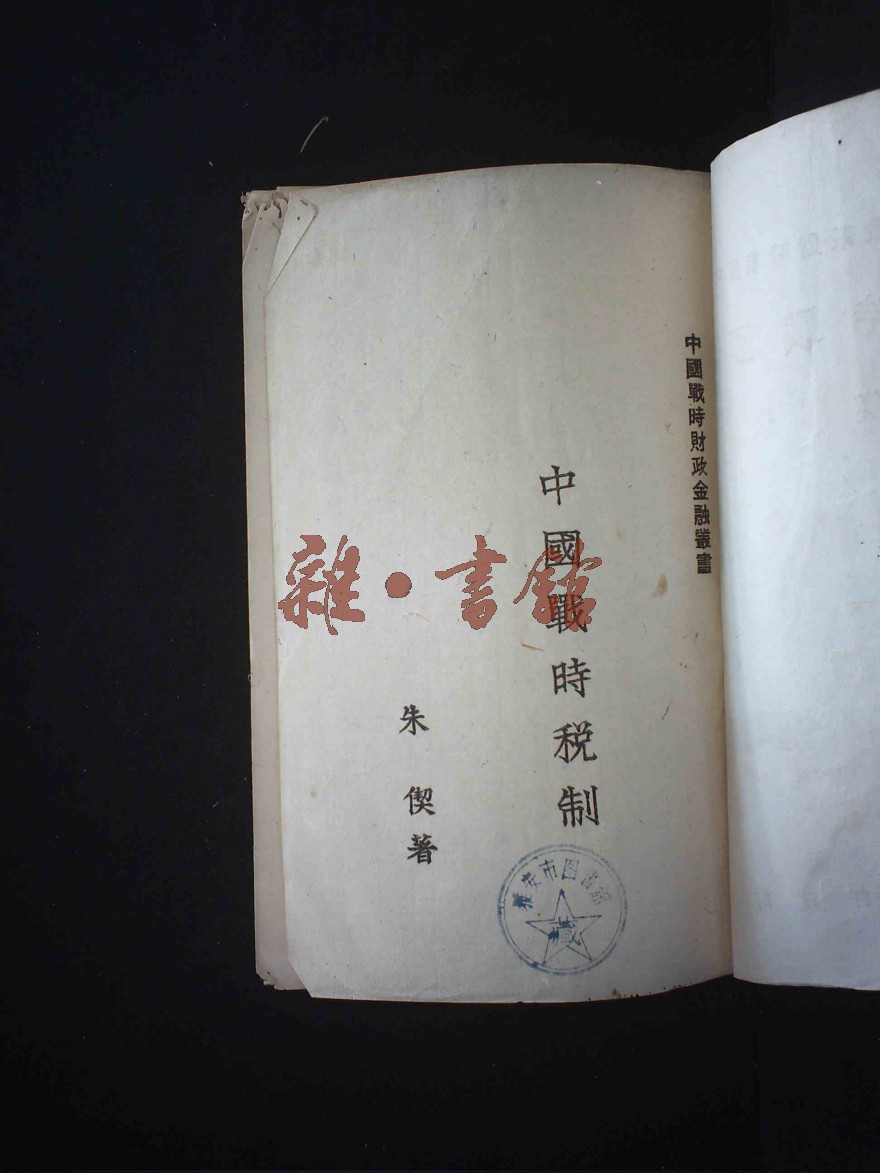 中國戰時財政金融叢書
中國戰時税制
朱偰著
雜·書館
雅安市图書館
藏